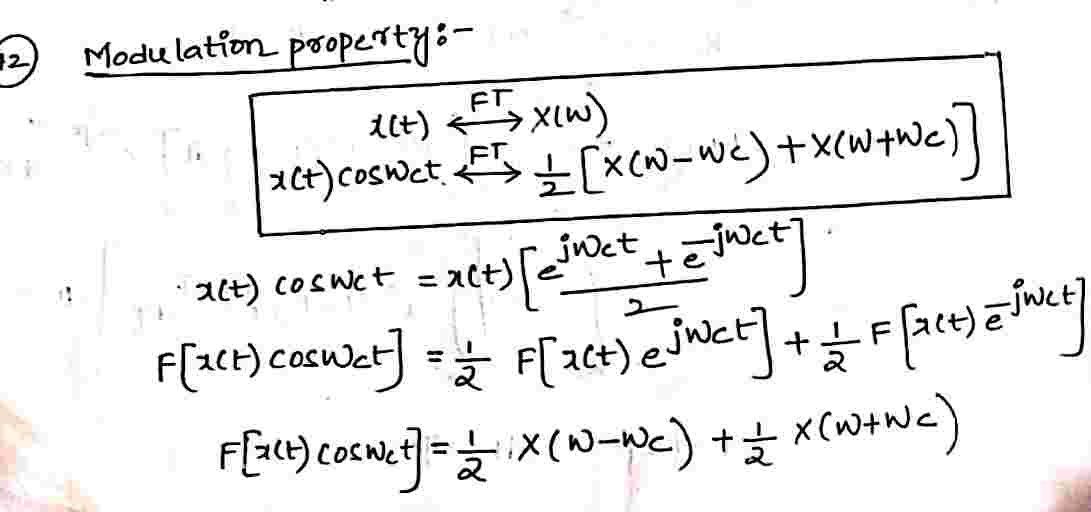 12 Modulation property:-
x(t) <--FT--> X(W)
x(t) cosWct <--FT--> 1/2 [X(W-Wc) + X(W+Wc)]
x(t) cosWct = x(t) [(e^jWct + e^-jWct)/2]
F[x(t) cosWct] = 1/2 F[x(t) e^jWct] + 1/2 F[x(t) e^-jWct]
F[x(t) cosWct] = 1/2 X(W-Wc) + 1/2 X(W+Wc)